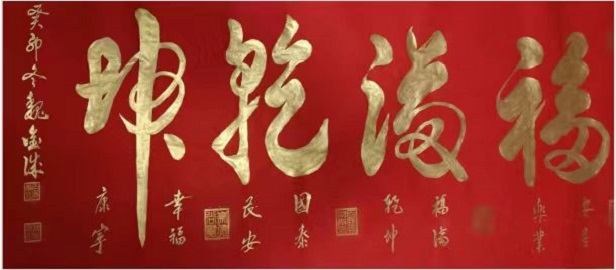 福滿乾坤
安居
樂業
福滿
乾坤
國泰
民安
幸福
康寧
癸卯冬魏金